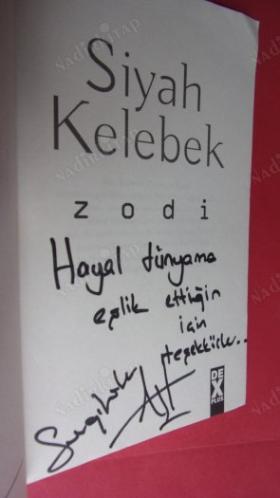 Siyah
Kelebek
zodi
Hayal dünyama
eşlik ettiğin
için
teşekkürler..
Sevgilerle
DEX
PLUS
NadirKitap